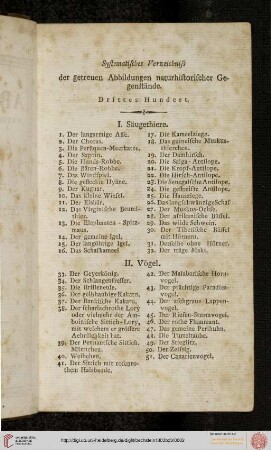 Systematisches Verzeichniß
der getreuen Abbildungen naturhistorischer Ge-
genstände.
Drittes Hundert.
I. Säugethiere.
1. Der langarmige Affe.
2. Der Choras.
3. Die Perücken-Meerkatze.
4. Der Saguin.
5. Die Hunds-Robbe.
6. Die Bären-Robbe.
7. Der Windspiel.
8. Die gefleckte Hyäne.
9. Der Kuguar.
10. Das kleine Wiesel.
11. Der Eisbär.
12. Das Virginische Beutel-
thier.
13. Die Elephanten-Spitz-
maus.
14. Der gemeine Igel.
15. Der langöhrige Igel.
16. Das Schafkameel
17. Die Kameelziege.
18. Das guineische Moschus-
thierchen.
19. Der Damhirsch.
20. Die Saiga-Antilope.
21. Die Kropf-Antilope.
22. Die Hirsch-Antilope.
23. Die Senegalische Antilope
24. Die gestreifte Antilope.
25. Die Hausziege.
26. Das langschwänzige Schaf
27. Der Moschus-Ochse.
28. Der afrikanische Büffel.
29. Das wilde Schwein.
30. Der Tibetanische Büffel
mit Hörnern.
31. Derselbe ohne Hörner.
32. Der träge Maki.
II. Vögel.
33. Der Geyerkönig.
34. Der Schlangenfresser.
35. Die Brilleneule.
36. Der gelbhaubige Kakatu.
37. Der
38. Der scharlachrothe Lory
oder vielmehr der Am-
boinische Sittich-Lory,
mit welchem er größere
Aehnlichkeit hat.
39. Der Peruanische Sittich.
Männchen.
40. Weibchen.
41. Der Sittich mit rosenro-
them Halsbande.
42. Der Malabarische Horn-
vogel.
43. Der prächtige Paradies-
vogel.
44. Der aschgraue Lappen-
vogel.
45. Der Riefen-Sturmvogel.
46. Der rothe Flammant.
47. Das gemeine Perlhuhn.
48. Die Turteltaube.
49. Der Stieglitz.
50. Der Zeisig.
51. Der Canarienvogel.